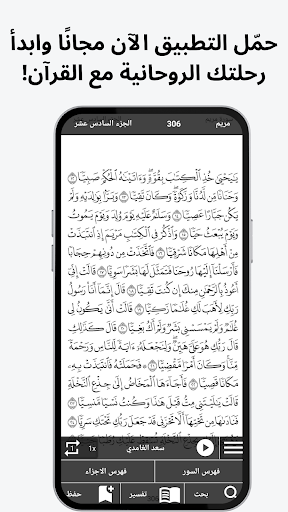 حمّل التطبيق الآن مجانًا وابدأ
رحلتك الروحانية مع القرآن!
الجزء السادس عشر
306
مريم
يَٰيَحْيَىٰ خُذِ ٱلْكِتَٰبَ بِقُوَّةٍ وَءَاتَيْنَٰهُ ٱلْحُكْمَ صَبِيًّا ١٢
وَحَنَانًا مِّن لَّدُنَّا وَزَكَوٰةً وَكَانَ تَقِيًّا ١٣ وَبَرًّۢا بِوَٰلِدَيْهِ وَلَمْ
يَكُن جَبَّارًا عَصِيًّا ١٤ وَسَلَٰمٌ عَلَيْهِ يَوْمَ وُلِدَ وَيَوْمَ يَمُوتُ
وَيَوْمَ يُبْعَثُ حَيًّا ١٥ وَٱذْكُرْ فِى ٱلْكِتَٰبِ مَرْيَمَ إِذِ ٱنتَبَذَتْ
مِنْ أَهْلِهَا مَكَانًا شَرْقِيًّا ١٦ فَٱتَّخَذَتْ مِن دُونِهِمْ حِجَابًا
فَأَرْسَلْنَآ إِلَيْهَا رُوحَنَا فَتَمَثَّلَ لَهَا بَشَرًا سَوِيًّا ١٧ قَالَتْ إِنِّىٓ
أَعُوذُ بِٱلرَّحْمَٰنِ مِنكَ إِن كُنتَ تَقِيًّا ١٨ قَالَ إِنَّمَآ أَنَا۠ رَسُولُ
رَبِّكِ لِأَهَبَ لَكِ غُلَٰمًا زَكِيًّا ١٩ قَالَتْ أَنَّىٰ يَكُونُ لِى
غُلَٰمٌ وَلَمْ يَمْسَسْنِى بَشَرٌ وَلَمْ أَكُ بَغِيًّا ٢٠ قَالَ كَذَٰلِكِ
قَالَ رَبُّكِ هُوَ عَلَىَّ هَيِّنٌ وَلِنَجْعَلَهُۥٓ ءَايَةً لِّلنَّاسِ وَرَحْمَةً
مِّنَّا وَكَانَ أَمْرًا مَّقْضِيًّا ٢١ فَحَمَلَتْهُ فَٱنتَبَذَتْ بِهِۦ
مَكَانًا قَصِيًّا ٢٢ فَأَجَآءَهَا ٱلْمَخَاضُ إِلَىٰ جِذْعِ ٱلنَّخْلَةِ
قَالَتْ يَٰلَيْتَنِى مِتُّ قَبْلَ هَٰذَا وَكُنتُ نَسْيًا مَّنسِيًّا ٢٣
فَنَادَىٰهَا مِن تَحْتِهَآ أَلَّا تَحْزَنِى قَدْ جَعَلَ رَبُّكِ تَحْتَكِ سَرِيًّا ٢٤
1x
سعد الغامدي
فهرس السور
فهرس الاجزاء
بحث
تفسير
حفظ